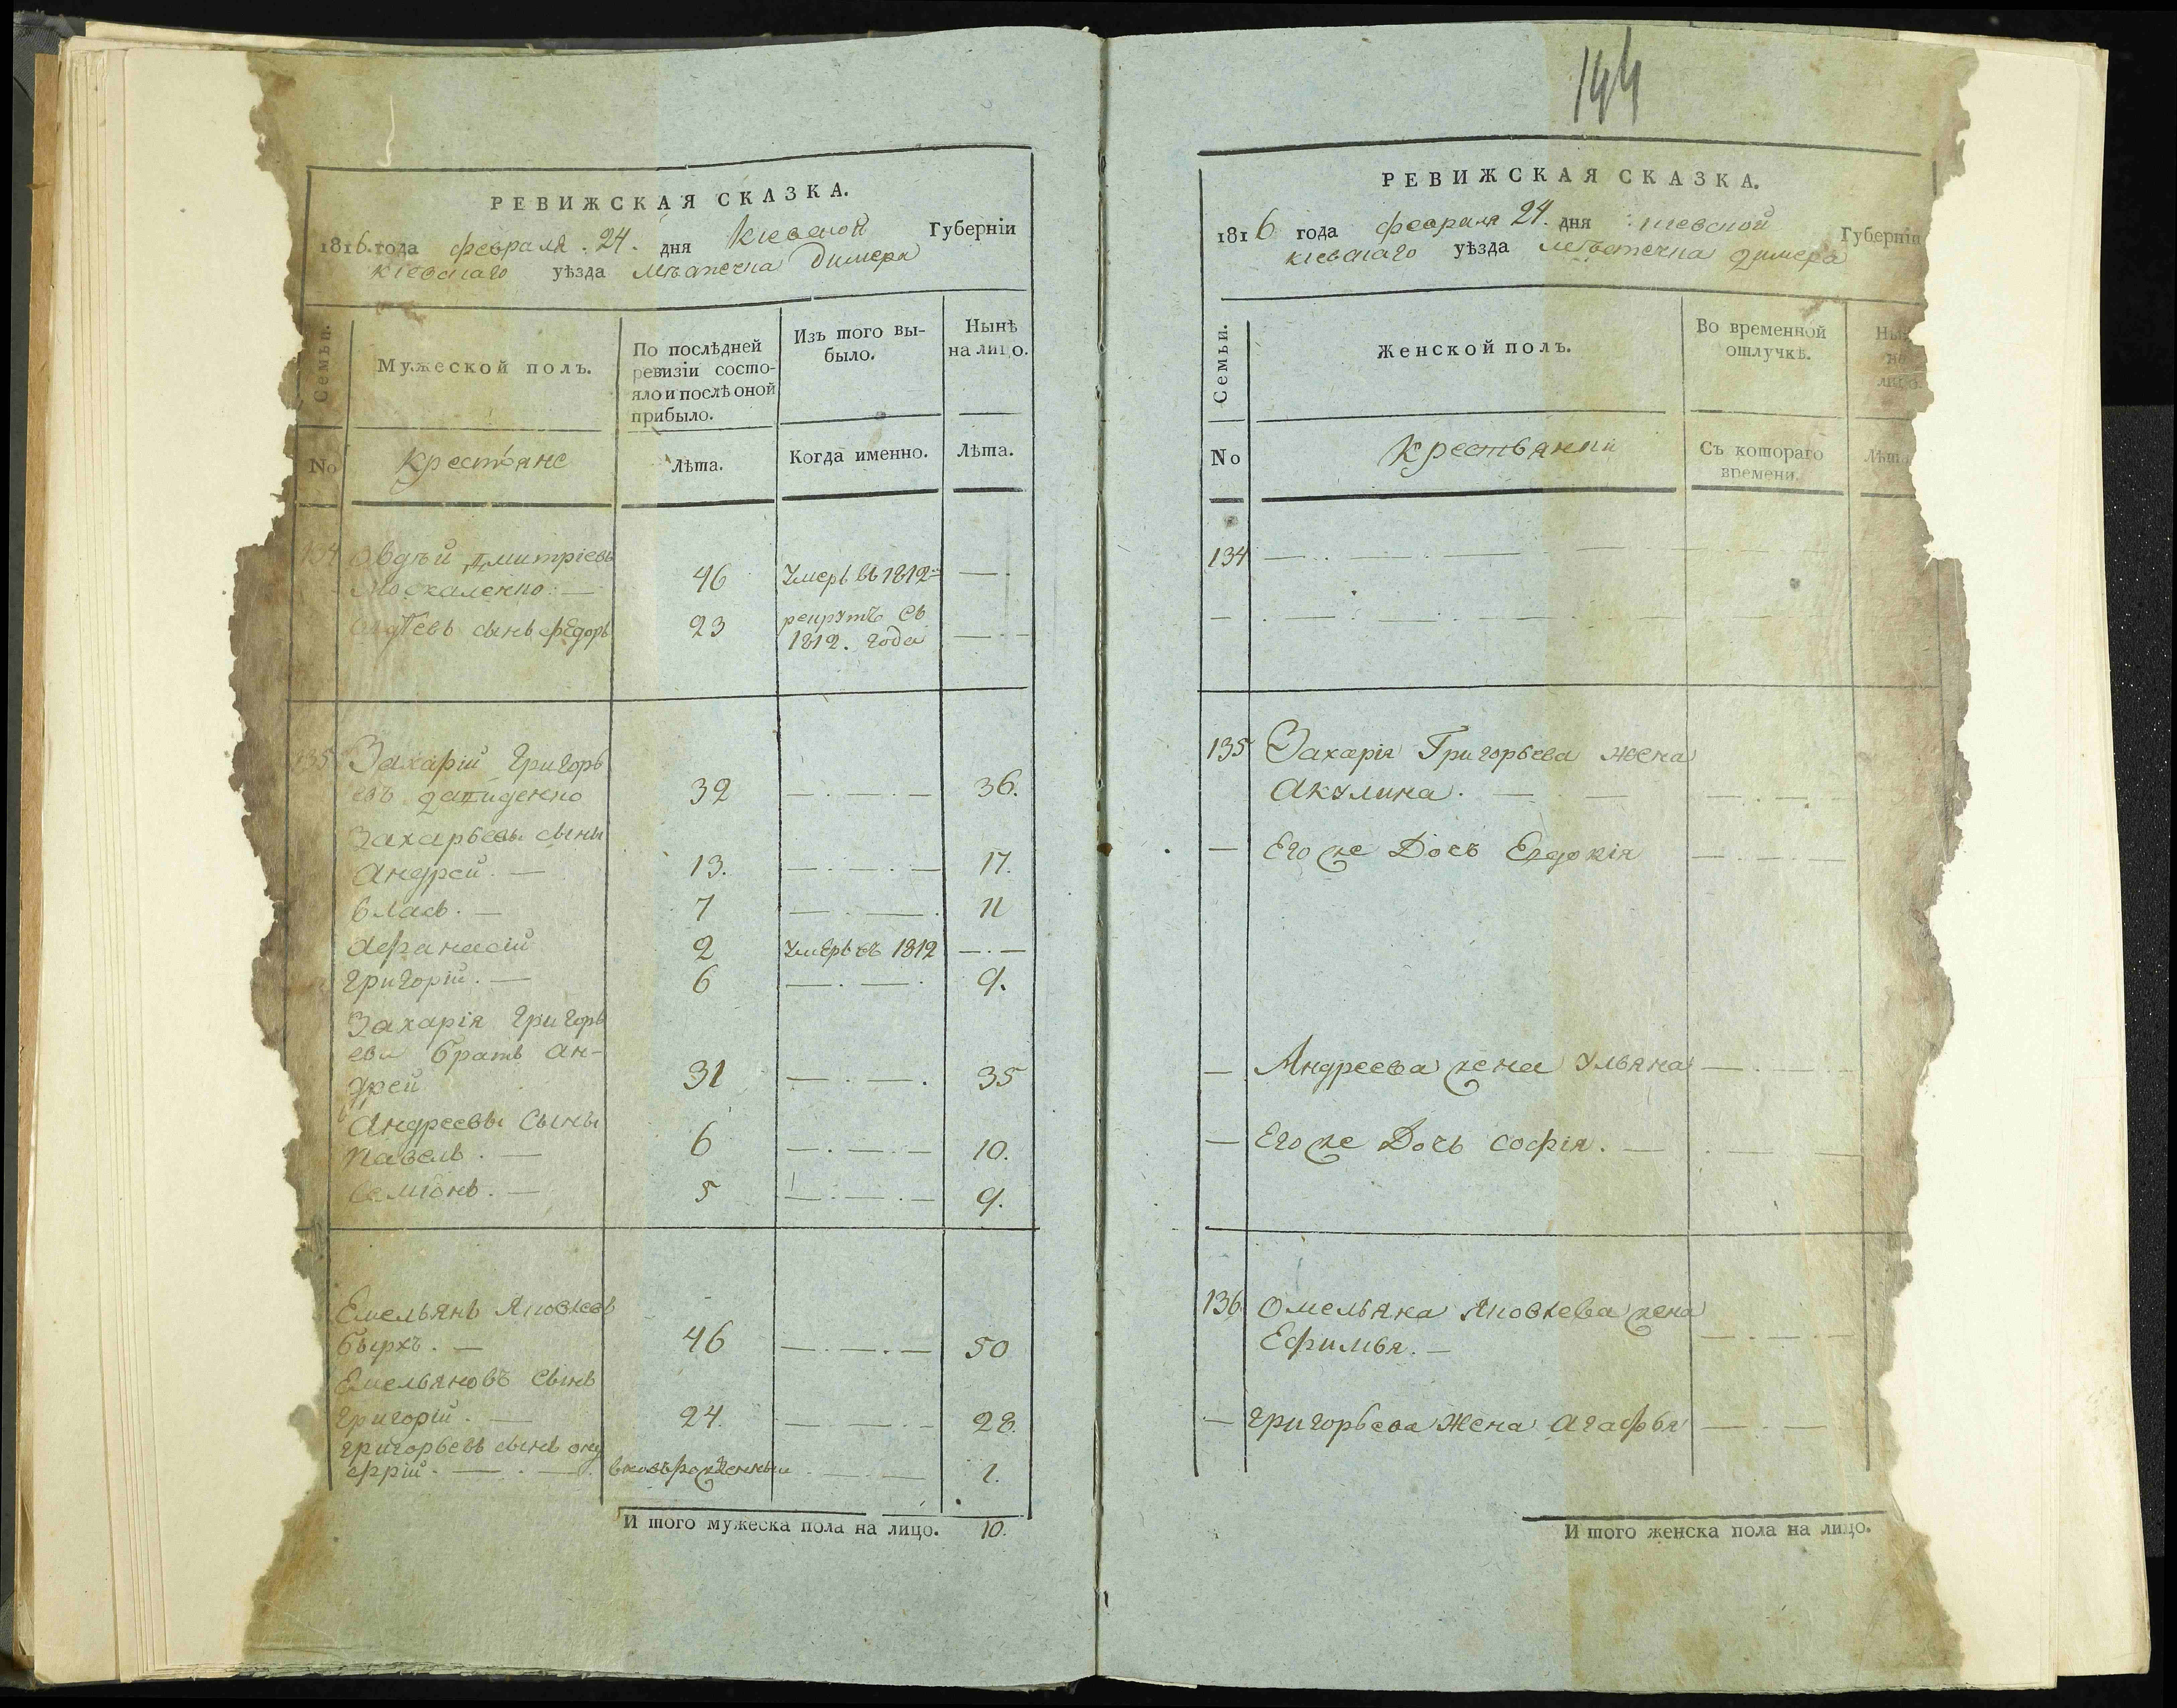 РЕВИЖСКАЯ СКАЗКА.
1816. года февраля. 24. дня Киевской Губерніи
Киевскаго уѣзда Мѣстечка Димера
Семьи.
Мужеской полъ.
По послѣдней
ревизіи состо-
яло и послѣ оной
прибыло.
Изъ того вы-
было.
Нынѣ
на лицо.
No
Крестьяне
Лѣта.
Когда именно.
Лѣта.
134 Овдѣй Дмитріевъ
Москаленко. — 46 Умеръ въ 1812 — .
сынъ Федоръ 23 рекрутъ съ
1812. года — . —
135 Захарій Григорь
евъ 32 — . — . — 36.
Захарьевы сыны
Андрей. — 13. — . — . — 17.
Власъ. — 7 — . — . 11
Афанасій 2 Умеръ въ 1812 — . —
Григорій. — 6 — . — . 9.
Захарія Григорь
ева братъ Ан-
дрей 31 — . — . 35
Андреевы Сыны
Павелъ. — 6 — . — . — 10.
Семіонъ. — 5 — . — . — 9.
Емельянъ Яковлевъ
46 — . — . — 50
Емельяновъ Сынъ
Григорій. — 24. — . — . — 28.
Григорьевъ сынъ ону
фрій. — . — . вновьрожденный . — 1.
И того мужеска пола на лицо. 10.
144
РЕВИЖСКАЯ СКАЗКА.
1816 года февраля 24. дня Киевской Губерніи
Киевскаго уѣзда Мѣстечка Димера
Семьи.
Женской полъ.
Во временной
отлучкѣ.
Нынѣ
на
лицо.
No
Крестьянки
Съ котораго
времени.
Лѣта
134 — . . — . — . —
135 Захарія Григорьева жена
Акулина. — . — — . — . —
— Его же Дочь Евдокія — . — . —
— Андреева жена Ульяна — . — . —
— Его же Дочь Софія. — . — . —
136 Омельяна Яковлева жена
Ефимья. — — . — . —
— Григорьева Жена Агафья — . — . —
И того женска пола на лицо.